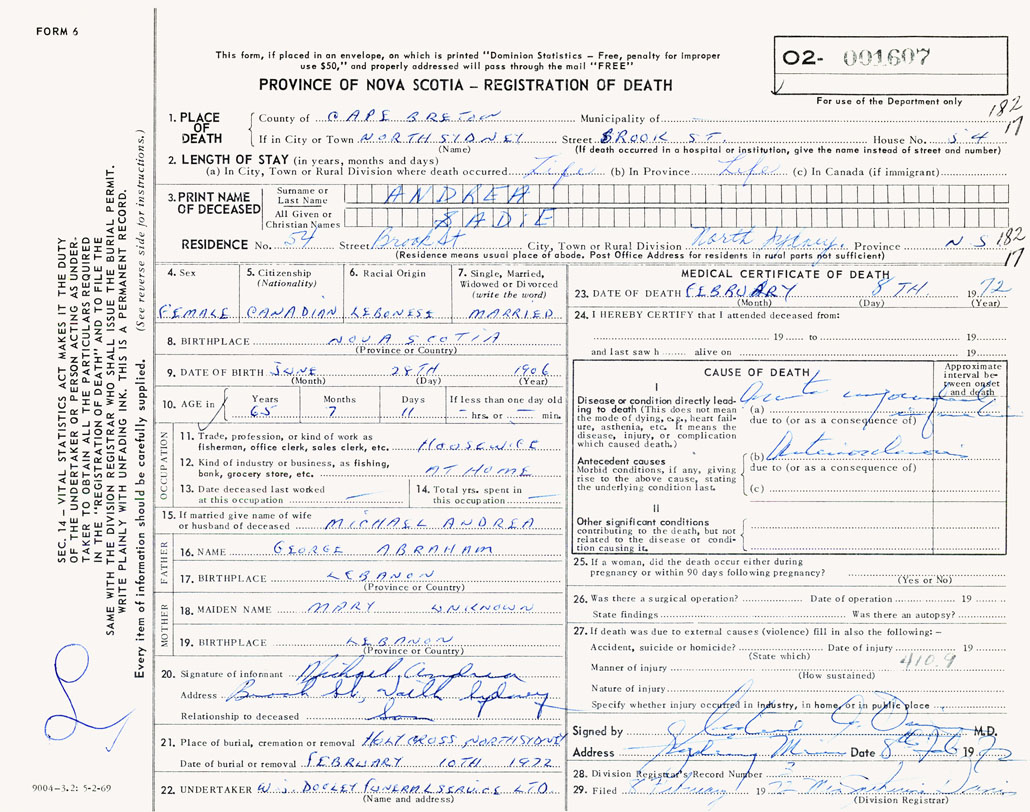 FORM 6
This form, if placed in an envelope, on which is printed "Dominion Statistics – Free, penalty for improper
use $50," and properly addressed will pass through the mail "FREE"
PROVINCE OF NOVA SCOTIA – REGISTRATION OF DEATH
O2- 001607
For use of the Department only
182
17
1. PLACE OF DEATH
County of CAPE BRETON Municipality of –
If in City or Town NORTH SYDNEY Street BROOK ST. House No. 54
(Name) (If death occurred in a hospital or institution, give the name instead of street and number)
2. LENGTH OF STAY (in years, months and days)
(a) In City, Town or Rural Division where death occurred Life (b) In Province Life (c) In Canada (if immigrant)
3. PRINT NAME OF DECEASED
Surname or Last Name ANDREA
All Given or Christian Names SADIE
RESIDENCE No. 54 Street Brook St City, Town or Rural Division North Sydney. Province N S
182
17
(Residence means usual place of abode. Post Office Address for residents in rural parts not sufficient)
4. Sex FEMALE
5. Citizenship (Nationality) CANADIAN
6. Racial Origin LEBONESE
7. Single, Married, Widowed or Divorced (write the word) MARRIED
8. BIRTHPLACE NOVA SCOTIA
(Province or Country)
9. DATE OF BIRTH JUNE 28TH 1906
(Month) (Day) (Year)
10. AGE in Years 65 Months 7 Days 11 If less than one day old – hrs. or – min.
OCCUPATION
11. Trade, profession, or kind of work as
fisherman, office clerk, sales clerk, etc. HOUSEWIFE
12. Kind of industry or business, as fishing,
bank, grocery store, etc. AT HOME
13. Date deceased last worked
at this occupation –
14. Total yrs. spent in
this occupation –
15. If married give name of wife
or husband of deceased MICHAEL ANDREA
FATHER
16. NAME GEORGE ABRAHAM
17. BIRTHPLACE LEBANON
(Province or Country)
MOTHER
18. MAIDEN NAME MARY UNKNOWN
19. BIRTHPLACE LEBANON
(Province or Country)
20. Signature of informant Michael Andrea
Address Brook St, North Sydney
Relationship to deceased Son
21. Place of burial, cremation or removal HOLY CROSS NORTH SYDNEY
Date of burial or removal FEBRUARY 10TH 1972
22. UNDERTAKER W. J. DOOLEY FUNERAL SERVICE LTD.
(Name and address)
MEDICAL CERTIFICATE OF DEATH
23. DATE OF DEATH FEBRUARY 8TH. 1972
(Month) (Day) (Year)
24. I HEREBY CERTIFY that I attended deceased from:
19 to 19
and last saw h alive on 19
CAUSE OF DEATH
Approximate interval between onset and death
I
Disease or condition directly lead-
ing to death (This does not mean
the mode of dying, e.g., heart fail-
ure, asthenia, etc. It means the
disease, injury, or complication
which caused death.)
(a) Acute myocardial infarction
due to (or as a consequence of)
Antecedent causes
Morbid conditions, if any, giving
rise to the above cause, stating
the underlying condition last.
(b) Arteriosclerosis
due to (or as a consequence of)
(c)
II
Other significant conditions
contributing to the death, but not
related to the disease or condi-
tion causing it.
25. If a woman, did the death occur either during
pregnancy or within 90 days following pregnancy?
(Yes or No)
26. Was there a surgical operation? Date of operation 19
State findings Was there an autopsy?
27. If death was due to external causes (violence) fill in also the following: –
Accident, suicide or homicide? Date of injury 19
(State which) 410.9
Manner of injury
(How sustained)
Nature of injury
Specify whether injury occurred in industry, in home, or in public place
Signed by M.D.
Address Sydney Mines Date 8th Feb 1972
28. Division Registrar's Record Number 3
29. Filed 8 February 1972
(Division Registrar)
SEC. 14 – VITAL STATISTICS ACT MAKES IT THE DUTY
OF THE UNDERTAKER OR PERSON ACTING AS UNDER-
TAKER TO OBTAIN ALL THE PARTICULARS REQUIRED
IN THE "REGISTRATION OF DEATH" AND TO FILE THE
SAME WITH THE DIVISION REGISTRAR WHO SHALL ISSUE THE BURIAL PERMIT.
WRITE PLAINLY WITH UNFADING INK. THIS IS A PERMANENT RECORD.
Every item of information should be carefully supplied. (See reverse side for instructions.)
9004–3.2: 5-2-69